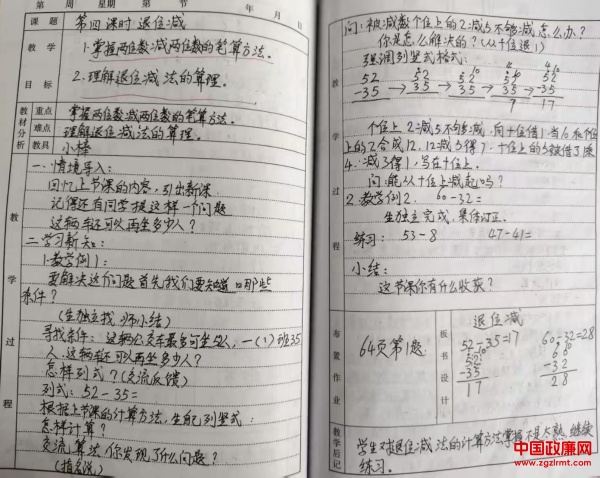 第 周 星期 第 节 年 月 日
课题 第四课时 退位减
教学目标 1.掌握两位数减两位数的笔算方法。
2.理解退位减法的算理。
教材分析 重点 掌握两位数减两位数的笔算方法。
难点 理解退位减法的算理。
教具 小棒
教学过程
一.情境导入:
回忆上节课的内容,引出新课
记得还有同学提这样一个问题
这辆车还可以再坐多少人?
二.学习新知:
1.教学例1:
要解决这个问题首先我们要知道哪些
条件?
(生独立找,师小结)
寻找条件:这辆公交车最多可坐52人,一(1)班35
人,这辆车还可以再坐多少人?
怎样列式?(交流反馈)
列式:52-35=
根据上节课的计算方法,生能列竖式:
怎样计算?
交流算法,你发现了什么问题?
(指名说)
教学过程
问:被减数个位上的2减5不够减怎么办?
你是怎么解决的?(从十位退1)
强调列竖式格式:
52 52 52 52 52
-35 → 35 → 35 → 35 → -35
7 17
个位上2减5不够减,向十位借1当10和个位
上的2合成12,12减5得7,十位上的5被借了1剩
4,减3得1,写在十位上。
问:能从十位上减起吗?
2.教学例2. 60-32=
生独立完成,集体订正。
练习: 53-8 47-41=
小结:
这节课你有什么收获?
布置作业 64页第1题.
板书设计 退位减
52-35=17 60-32=28
52 60
-35 -32
17 28
教学后记 学生对退位减法的计算方法掌握不是太熟,继续
练习。
中国政廉网
www.zgzlrmt.com